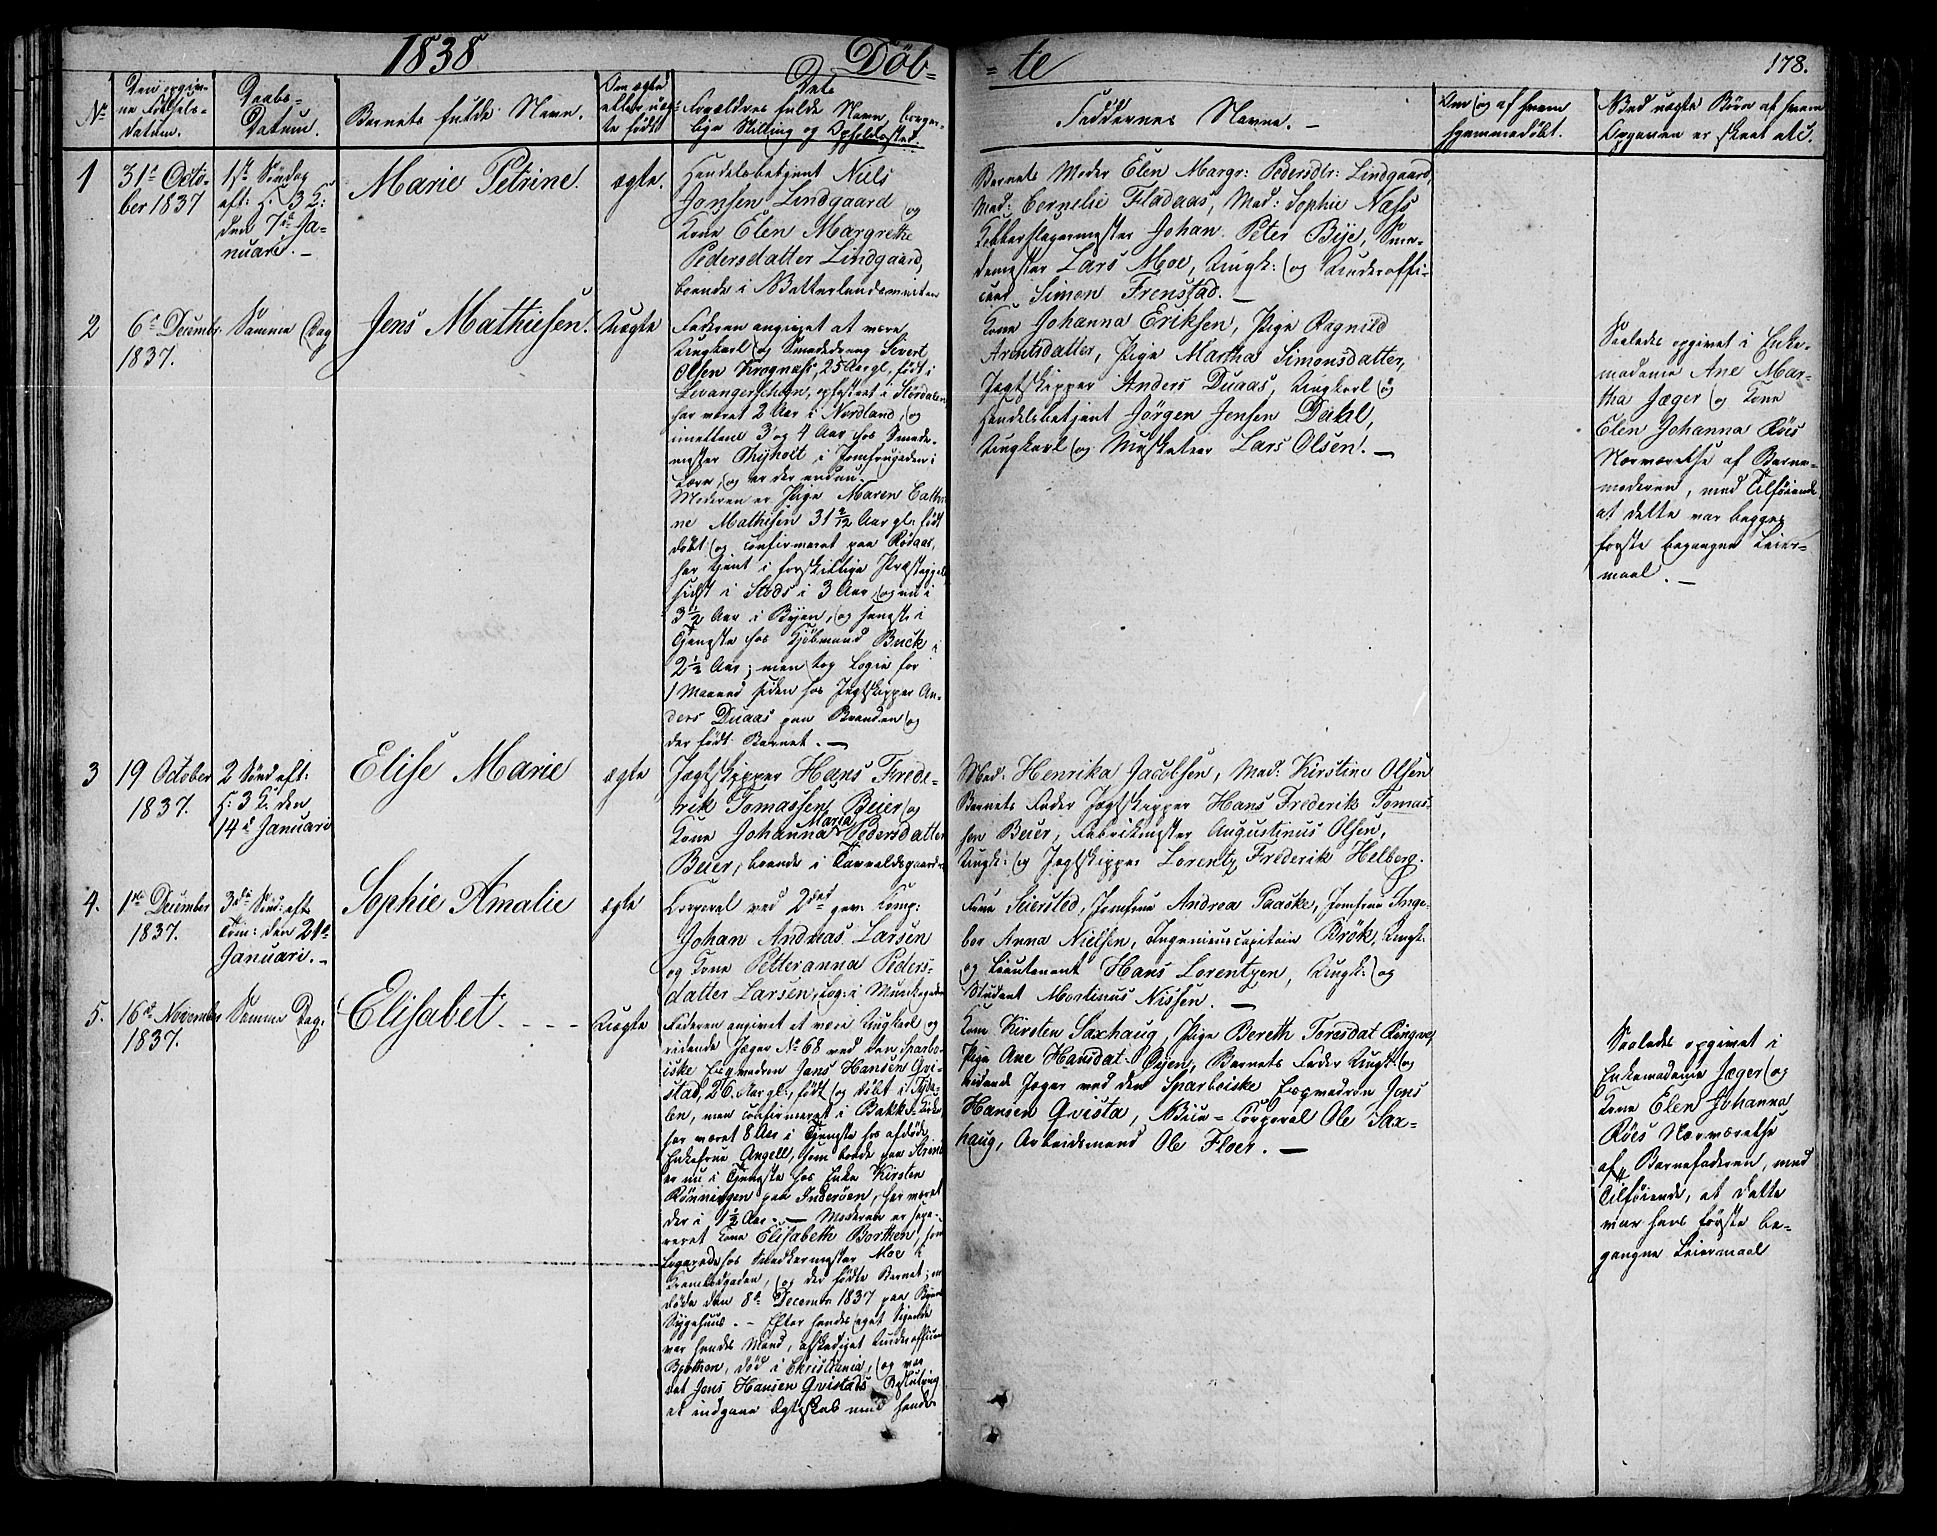 1838 Döb-
-te
178.
No
Den opgiv-
ne Fødsels-
datum.
Daabs-
Datum.
Barnets fulde Navn.
Om ægte
eller uæg-
te født
Dets
Forældres fulde Navn, borger-
lige Stilling og Opholdssted.
Faddernes Navne. -
Om og af hvem
hjemmedøbt.
Ved uægte Børn af hvem
Opgaven er skeet etc.
1
31te Octo-
ber 1837
1ste Søndag
eft: H: 3 K:
den 7de Ja-
nuari. -
Marie Petrine.
ægte.
Handelsbetjent Niels
Jonsen Lindgaard og
Kone Elen Margrethe
Pedersdatter Lindgaard,
boende i Vatterlandsveiten
Barnets Moder Elen Margr: Pedersdtr: Lindgaard,
Mad: Cornelie Fladaas, Mad: Sophie Næss
Kobberslagermester Johan Peter Bye, Sme-
demester Lars Moe, Ungk: og Underoffi-
cent Simon Frenstad. -
2
6te Decembr.
1837.
Samme Dag
Jens Mathiesen.
Uægte
Faderen angivet at være
Ungkarl og Smededreng Sivert
Olsen Krognæss, 25 Aar gl., født i
Levanger Sogn, opfostret i Stordalen
har været 2 Aar i Nordland, og
imellem 3 og 4 Aar hos Smede-
mester Thyholt i Jomfrugaden i
Lære, og er der endnu.
Moderen er Pige Maren Cathri
ne Mathisen 31 2/12 Aar gl: født
døbt og confirmeret paa Røraas,
har tjent i forskjellige Præstegjeld
sidst i Stods i 3 Aar, og nu i
3 1/2 Aar i Byen, og seneste i
Tjeneste hos Kjøbmand Buck i
2 1/2 Aar; men tog Logie for
1 Maaned siden hos Jægtskipper An-
ders Duaas paa Branden og
der født Barnet. -
Kone Johanna Eriksen, Pige Ragnild
Arntsdatter, Pige Martha Simonsdatter,
Jægtskipper Anders Duaas, Ungkarl og
Handelsbetjent Jörgen Jensen Dahl,
Ungkarl og Musketeer Lars Olsen. -
Saaledes opgivet i Enke-
madame Ane Mar-
tha Jæger og Kone
Elen Johanna Röes
Nærværelse af Barne-
moderen, med Tilføiende
at dette var begges
første begangne Leier-
maal. -
3
19 October
1837.
2 Sönd eft:
H: 3 K. den
14de Januari
Elise Marie
ægte
Jægtskipper Hans Frede-
rik Tomassen Beier og
Kone Johanna Maria Pedersdatter
Beier, boende i Tavvaldsgaarden
Mad: Henrika Jacobsen, Mad: Kirstine Olsen
Barnets Fader Jægtskipper Hans Frederik Tomas-
sen Beier, Fabrikmester Augustinus Olsen,
Ungk: og Jægtskipper Lorentz Frederik Helberg.
4.
1ste December
1837.
3die Sönd: eft
Tom: den 21de
Januari. -
Sophie Amalie
ægte
Corporal ved 2det gev. Comp:
Johan Andreas Larsen
og Kone Petteranna Peders-
datter Larsen, Log: i Munkegaden
Frue Seiersted, Jomfrue Andrea Paaske, Jomfrue Inge-
bor Anna Nielsen, Ingenieurcapitain Brök, Ungk:
og Lieutenant Hans Lorentzen, Ungk: og
Student Mortinus Nissen. -
5.
16de November
1837.
Samme Dag.
Elisabet - - - -
Uægte
Faderen angivet at være Ungkarl og
ridende Jæger No 68 ved den Sparbo-
iske Esqvadron Jens Hansen Qvi-
stad, 26 Aar gl:, født og døbt i Tyda-
len, men confirmeret i Bakke Kirke,
har været 8 Aar i Tjeneste hos afdöde
Enkefrue Angell, som boede paa
er nu i Tjeneste hos Enke Kirsten
Rönningen paa Inderöen, har været
der i 1 1/2 Aar. - Moderen er sepe-
reret Kone Elisabeth Borthen, som
logerede hos Snedkermester Moe i
Krambodgaden, og der födte Barnet;
døde den 8de Decemr 1837 paa Byens
Sygehuus. - Efter hendes eget Sigende
var hendes Mand, afskediget Underofficeer
Borthen, död i Christiania, og var
det Jens Hansen Qvistads Beslutning
at indgaae Ægteskab med hende
Kone Kirsten Saxhaug, Pige Bereth Toresdat Ringve,
Pige Ane Hansdat. Oyen, Barnets Fader Ungk: og
ridende Jæger ved den Sparboiske Esqvadron Jens
Hansen Qvista, Vice-Corporal Ole Sax-
haug, Arbeidsmand Ole Floer. -
Saaledes opgivet i
Enkemadame Jæger og
Kone Elen Johanna
Röes Nærværelse
af Barnefaderen, med
Tilföiende, at dette
var hans förste be-
gangne Leiermaal